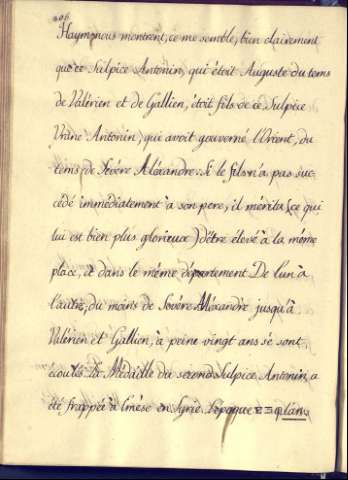 406.
Haym, nous montrent, ce me semble, bien clairement
que ce Sulpice Antonin, qui étoit Auguste du tems
de Valérien et de Gallien, étoit fils de ce Sulpice
Vrane Antonin, qui avoit gouverné l'Orient, du
tems de Sévére Aléxandre. Si le fils n'a pas suc-
cédé immédiatement à son pere, il mérita (ce qui
lui est bien plus glorieux) d'être élevé à la même
place, et dans le même département. De l'un à
l'autre, du moins de Sévére Aléxandre jusqu'à
Valérien et Gallien, à peine vingt ans se sont
écoulés. La Médaille du second Sulpice Antonin, a
été frappée à Emése en Syrie. L'epoque
dans